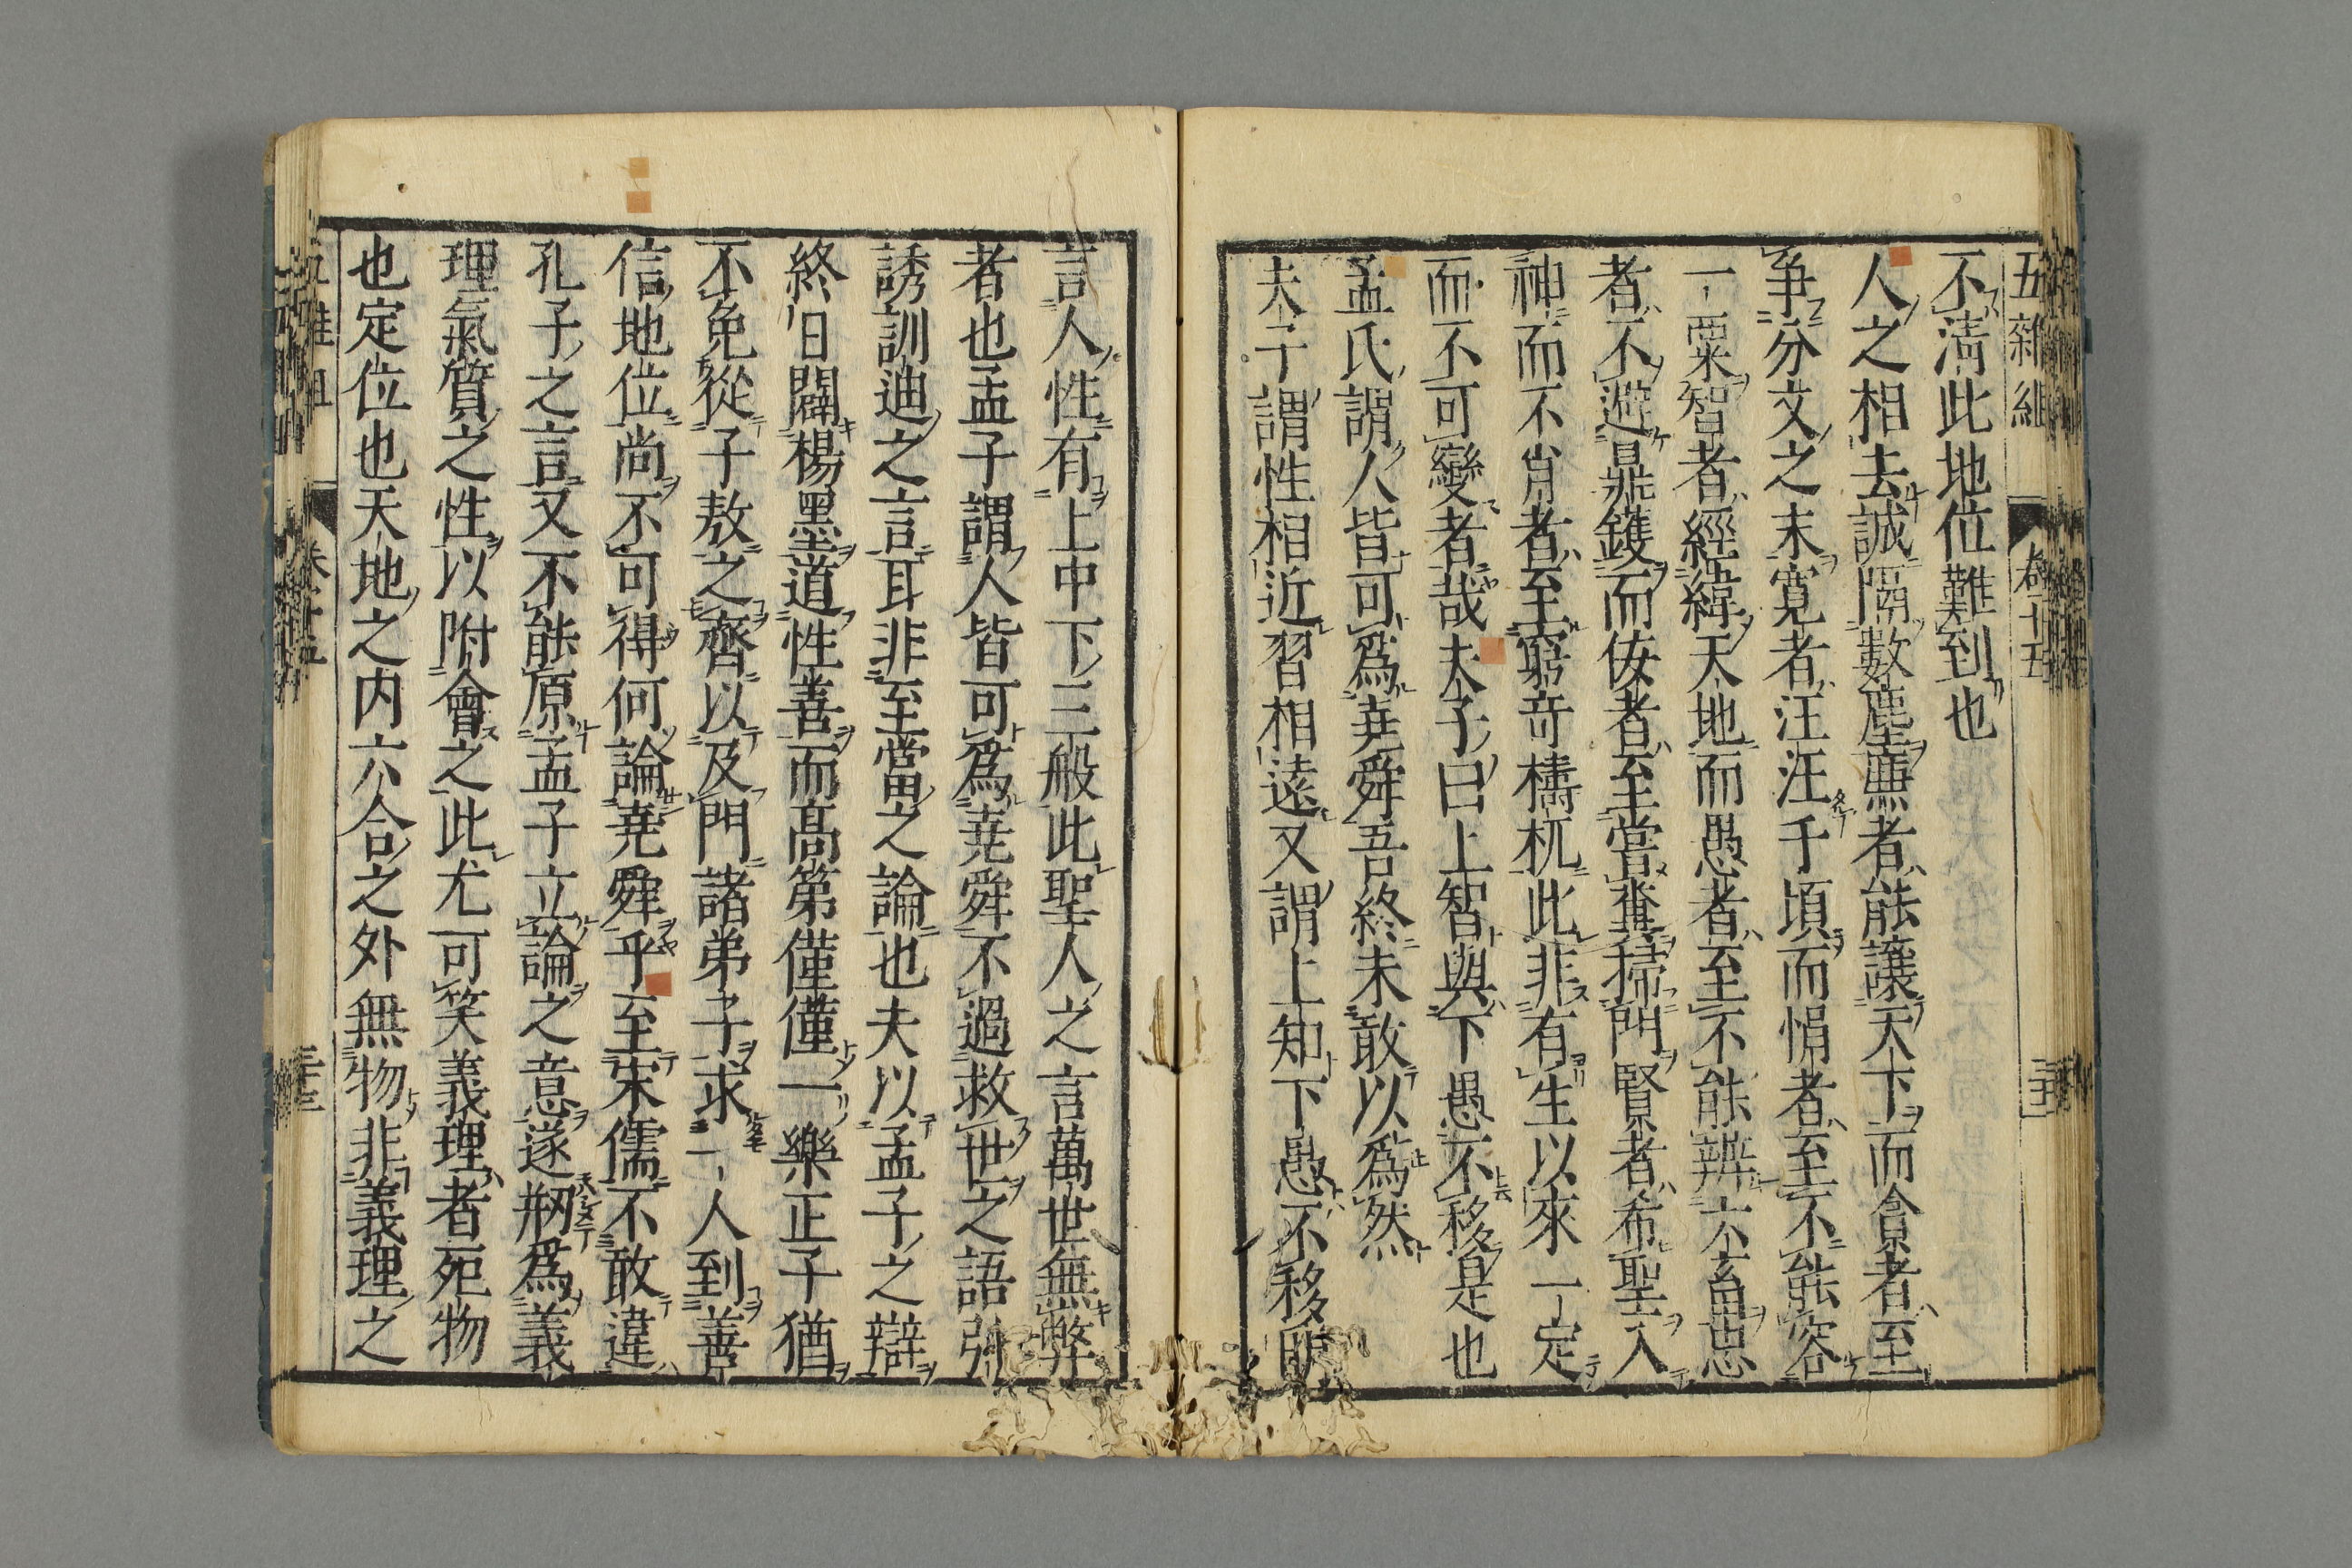 五雜組 卷十五
不淸此地位難到也
人之相去誠隔數塵廉者能讓天下而貪者至
爭分文之末寬者汪汪千頃而悁者至不能容
一粟智者經緯天地而愚者至不能辨六畜忠
者不避鼎鑊而佞者至嘗糞掃門賢者希聖入
神而不肖者至窮竒檮杌此非有生以來一定
而不可變者哉夫子曰上智與下愚不移是也
孟氏謂人皆可爲堯舜吾終未敢以爲然
夫子謂性相近習相遠又謂上知下愚不移明
言人性有上中下三般此聖人之言萬世無弊
者也孟子謂人皆可爲堯舜不過救世之語引
誘訓迪之言耳非至當之論也夫以孟子之辯
終日闢楊墨道性善而高第僅僅一樂正子猶
不免從子敖之齊以及門諸弟子求一人到善
信地位尚不可得何論堯舜乎至宋儒不敢違
孔子之言又不能原孟子立論之意遂剏爲義
理氣質之性以附會之此尤可笑義理者死物
也定位也天地之内六合之外無物非義理之
五雜組 卷十五